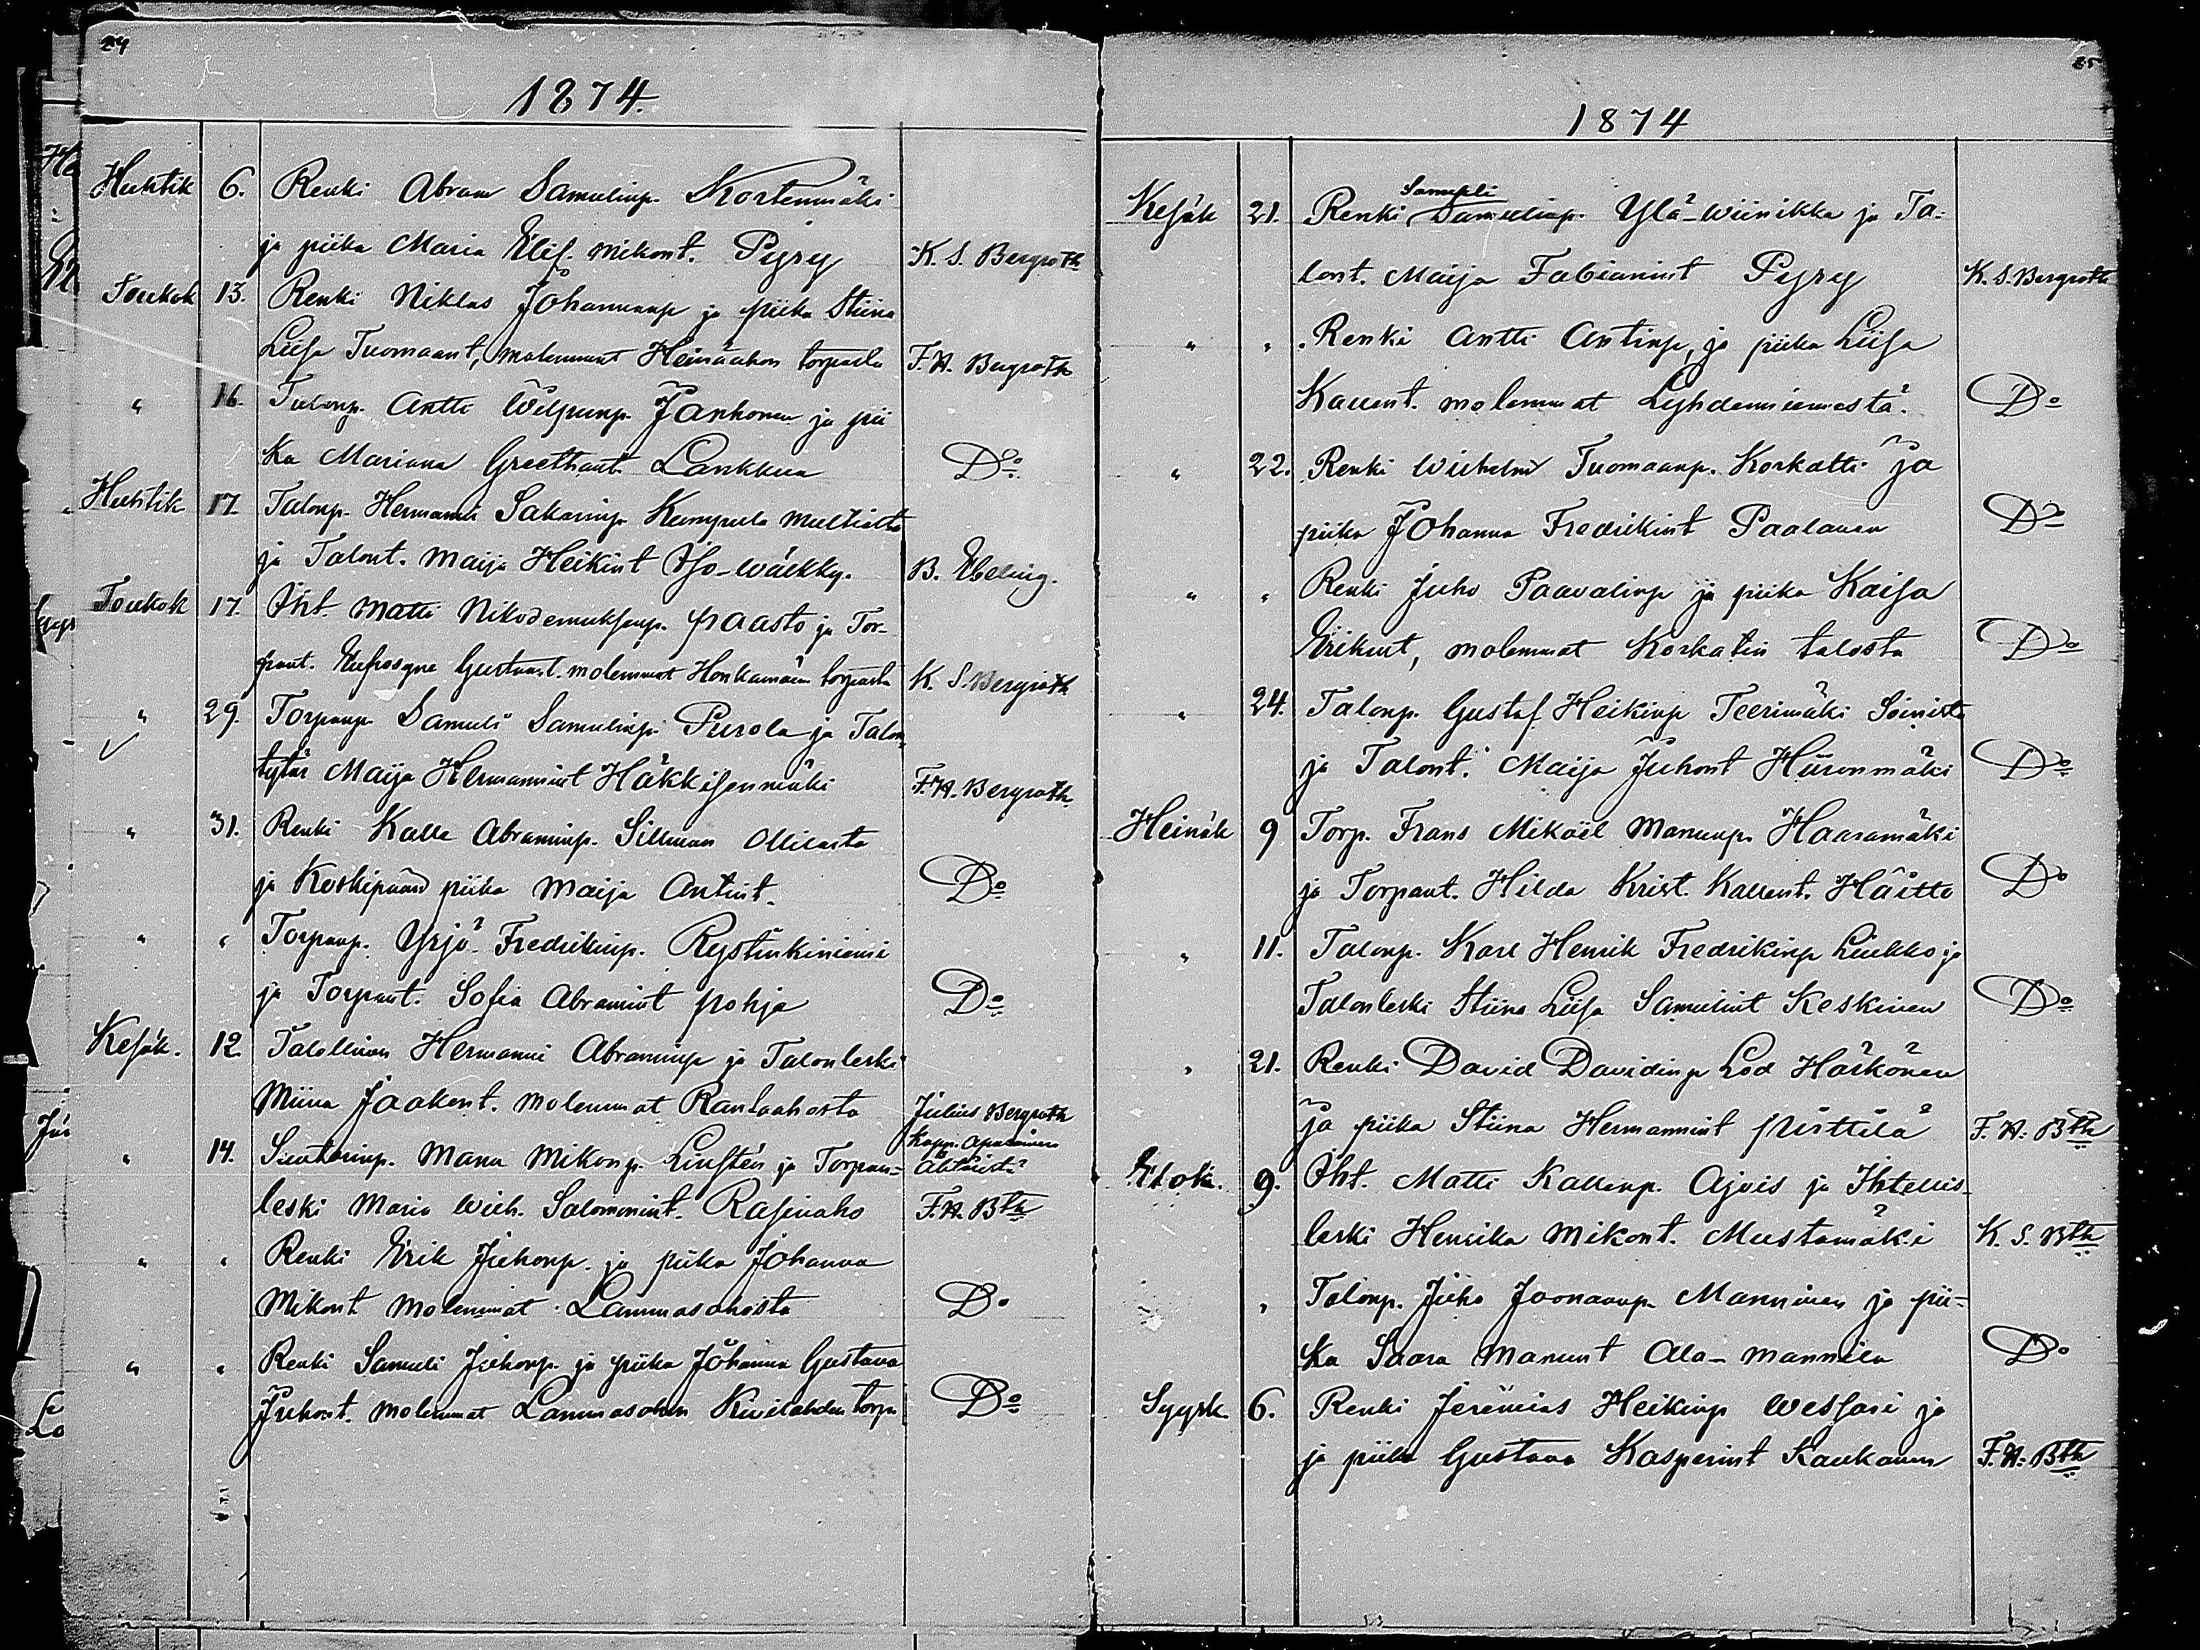 24
1874.
Huhtik 6. Renki Abram Samulinp. Kortenmäki
ja piika Maria Elis. Mikont. Pyry K. S. Bergroth
Toukok 13. Renki Niklas Johannanp ja piika Stiina
Liisa Tuomaant, molemmat Heinäahon torpasta F. H. Bergroth
" 16. Talonp. Antti Wilpunp. Janhonen ja pii
ka Mariana Greethant. Lankkua Do
Huhtik 17. Talonp. Hermanni Sakarinp Kumpula Multialta
ja Talont. Maija Heikint Iso-wäkky. B. Ebeling.
Toukok 17. Iht Matti Nikodemuksenp. paasto ja Tor-
pant. Eufrosyne Gustavt. molemmat Honkamäen torpasta K. S. Bergroth
" 29. Torpanp Samuli Samulinp. Purola ja Talon
tytär Maija Hermannint Häkkisenmäki F. H. Bergroth
" 31. Renki Kalle Abraminp. Sillman Ollilasta
ja Koskipään piika Maija Antint. Do
" " Torpanp. Yrjö Fredrikinp. Rystinkiniemi
ja Torpant. Sofia Abramint pohja Do
Kesäk. 12. Talollinen Hermanni Abraminp ja Talonleski
Miina Jaakont. molemmat Rantaahosta Julius Bergroth
Kapp. Apulainen
" 14. Suutarinp. Manu Mikonp. Linstén ja Torpan=
leski Maria Wilh. Salomonint. Rasinaho F. H. Bth
" " Renki Erik Juhonp. ja piika Johanna
Mikont molemmat Lammasahosta Do
" " Renki Samuli Juhonp. ja piika Johanna Gustava
Juhont. molemmat Lammasahon Kivilahden torp. Do
25
1874
Samuli
Kesäk 21. Renki Samulinp. Ylä-wiinikka ja Ta-
lont. Maija Fabianint Pyry K. S. Bergroth
" " Renki Antti Antinp, ja piika Liisa
Kallent. molemmat Lyhdenniemestä. Do
" 22. Renki Wilhelm Tuomaanp. Korkatti ja
piika Johanna Fredrikint Paalanen Do
" " Renki Juho Paavalinp ja piika Kaisa
Erikint, molemmat Korkatin talosta Do
" 24. Talonp. Gustaf Heikinp Teerimäki Soinista
ja Talont. Maija Juhont Hiironmäki Do
Heinäk 9 Torp. Frans Mikäel Manunp. Haaramäki
ja Torpant. Hilda Krist. Kallent. Häitto Do
" 11. Talonp. Karl Henrik Fredrikinp Liukko ja
Talonleski Stiina Liisa Samulint Keskinen Do
" 21. Renki David Davidinp Lod Härkönen
ja piika Stiina Hermannint pirttilä F. H. Bth
Elok. 9. Iht. Matti Kallenp. Ajois ja Ihtellis-
leski Henrika Mikont. Mustamäki K. S. Bth
" Talonp. Juho Joonaanp. Manninen ja pii=
ka Saara Manunt Ala-mannila Do
Syysk. 6. Renki Jeremias Heikinp Wessari ja
ja piika Gustava Kasperint Kaukanen F. H. Bth